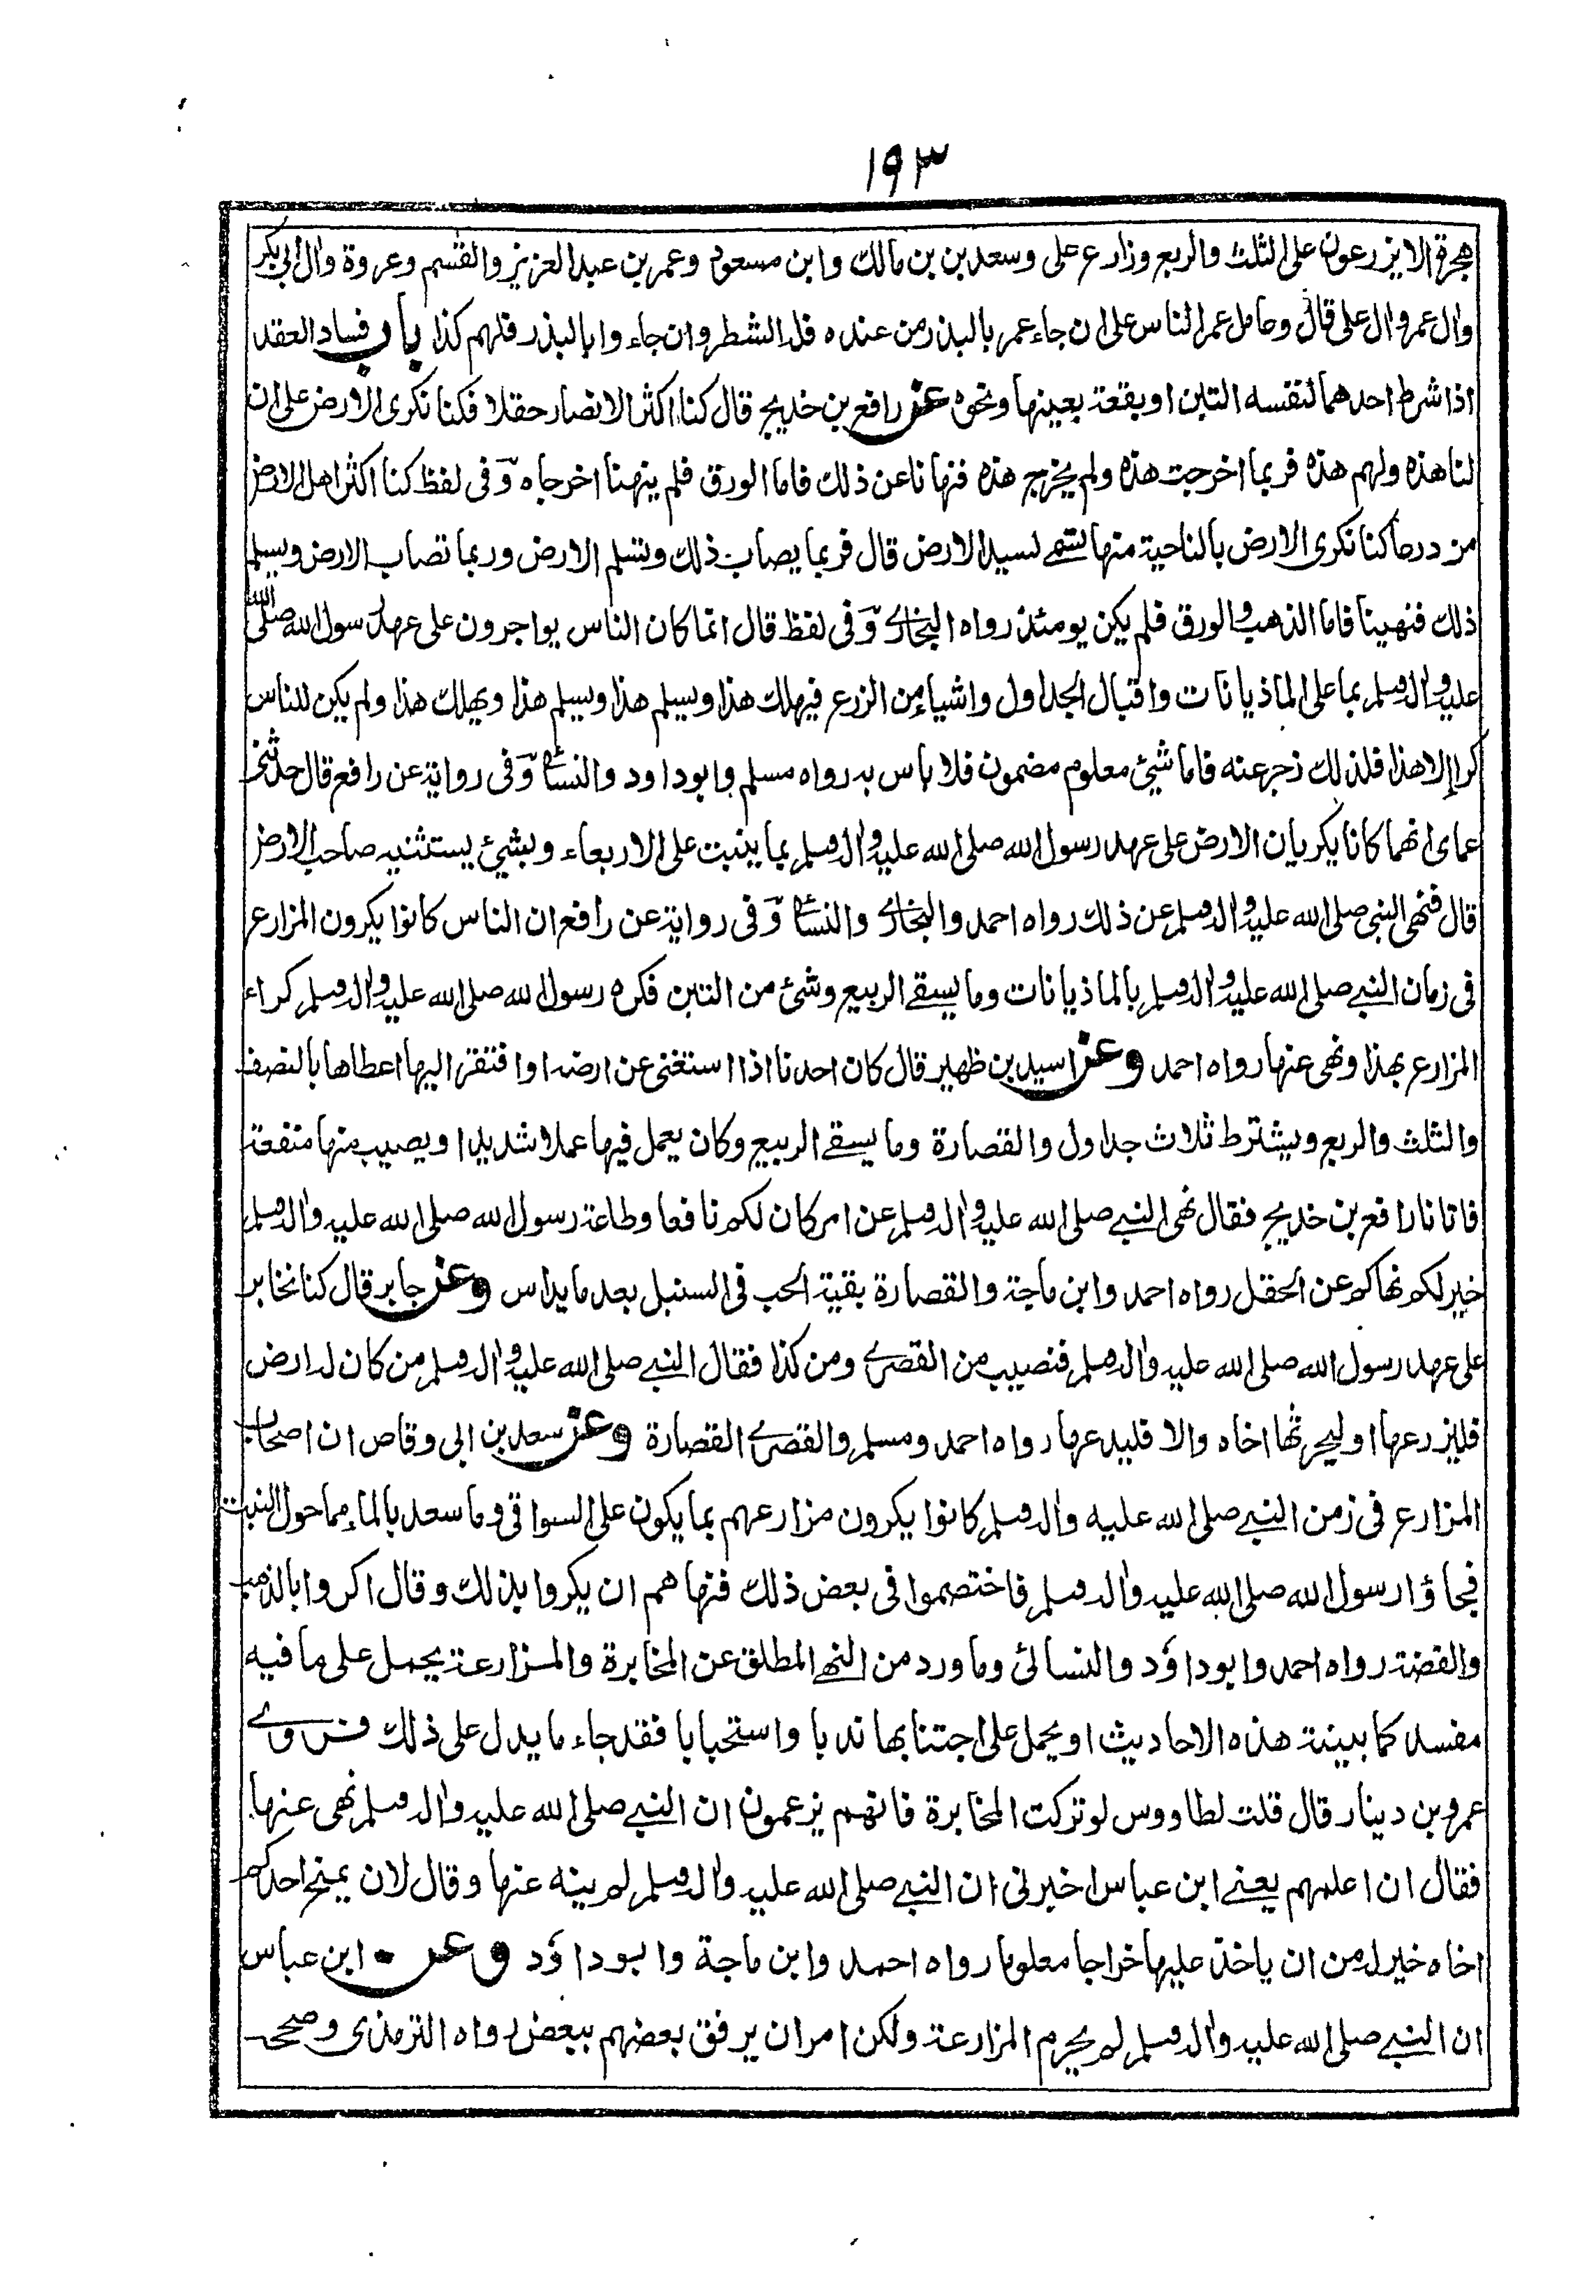 ١٩٣
هجرة الا يزرعون على الثلث والربع وزارع على وسعد بن بن مالك وابن مسعود وعمر بن عبد العزيز والقسم وعروة وال ابى بكر
وال عمر وال على قال وعامل عمر الناس على ان جاء عمر بالبذر من عنده فله الشطر وان جاءوا بالبذر فلهم كذا باب فساد العقد
اذا شرط احدهما لنفسه التبن او بقعة بعينها ونحوه عن رافع بن خديج قال كنا اكثر الانصار حقلا فكنا نكرى الارض على ان
لنا هذه ولهم هذه فربما اخرجت هذه ولم يخرج هذه فنهانا عن ذلك فاما الورق فلم ينهنا اخرجاه وفى لفظ كنا اكثر اهل الارض
من درعا كنا نكرى الارض بالناحية منها تسمى لسيد الارض قال فربما يصاب ذلك وتسلم الارض وربما تصاب الارض ويسلم
ذلك فنهينا فاما الذهب والورق فلم يكن يومئذ رواه البخارى وفى لفظ قال انما كان الناس يواجرون على عهد رسول الله صلى الله
عليه واله وسلم بما على الماذيانات واقبال الجداول واشياء من الزرع فيهلك هذا ويسلم هذا ويسلم هذا ويهلك هذا ولم يكن للناس
كرا إلا هذا فلذلك زجر عنه فاما شيئ معلوم مضمون فلا باس به رواه مسلم وابوداود والنسائى وفى رواية عن رافع قال حدثنى
عماى انهما كانا يكريان الارض على عهد رسول الله صلى الله عليه واله وسلم بما ينبت على الاربعاء وبشيئ يستثنيه صاحب الارض
قال فنهى النبى صلى الله عليه واله وسلم عن ذلك رواه احمد والبخارى والنسائى وفى رواية عن رافع ان الناس كانوا يكرون المزارع
فى زمان النبى صلى الله عليه واله وسلم بالماذيانات وما يسقى الربيع وشئ من التبن فكره رسول الله صلى الله عليه واله وسلم كراء
المزارع بهذا ونهى عنها رواه احمد وعن اسيد بن ظهير قال كان احدنا اذا استغنى عن ارضه او افتقر اليها اعطاها بالنصف
والثلث والربع ويشترط ثلاث جداول والقصارة وما يسقى الربيع وكان يعمل فيها عملا شديدا ويصيب منها منفعة
فاتانا رافع بن خديج فقال نهى النبى صلى الله عليه واله وسلم عن امر كان لكم نافعا وطاعة رسول الله صلى الله عليه واله وسلم
خير لكم نهاكم عن الحقل رواه احمد وابن ماجة والقصارة بقية الحب فى السنبل بعد ما يداس وعن جابر قال كنا نخابر
على عهد رسول الله صلى الله عليه واله وسلم فنصيب من القصرى ومن كذا فقال النبى صلى الله عليه واله وسلم من كان له ارض
فليزرعها او ليحرثها اخاه والا فليدعها رواه احمد ومسلم والقصرى القصارة وعن سعد بن ابى وقاص ان اصحاب
المزارع فى زمن النبى صلى الله عليه واله وسلم كانوا يكرون مزارعهم بما يكون على السواقى وما سعد بالماء مما حول النبت
فجاؤا رسول الله صلى الله عليه واله وسلم فاختصموا فى بعض ذلك فنهاهم ان يكروا بذلك وقال اكروا بالذهب
والفضة رواه احمد وابوداؤد والنسائى وما ورد من النهى المطلق عن المخابرة والمزارعة يحمل على ما فيه
مفسد كما بينته هذه الاحاديث او يحمل على اجتنابها ندبا واستحبابا فقد جاء ما يدل على ذلك فروى
عمرو بن دينار قال قلت لطاووس لو تركت المخابرة فانهم يزعمون ان النبى صلى الله عليه واله وسلم نهى عنها
فقال ان اعلمهم يعنى ابن عباس اخبرنى ان النبى صلى الله عليه واله وسلم لم ينه عنها وقال لان يمنح احدكم
اخاه خير له من ان ياخذ عليها خراجا معلوما رواه احمد وابن ماجة وابوداؤد وعن ابن عباس
ان النبى صلى الله عليه واله وسلم لم يحرم المزارعة ولكن امر ان يرفق بعضهم ببعض رواه الترمذى وصححه